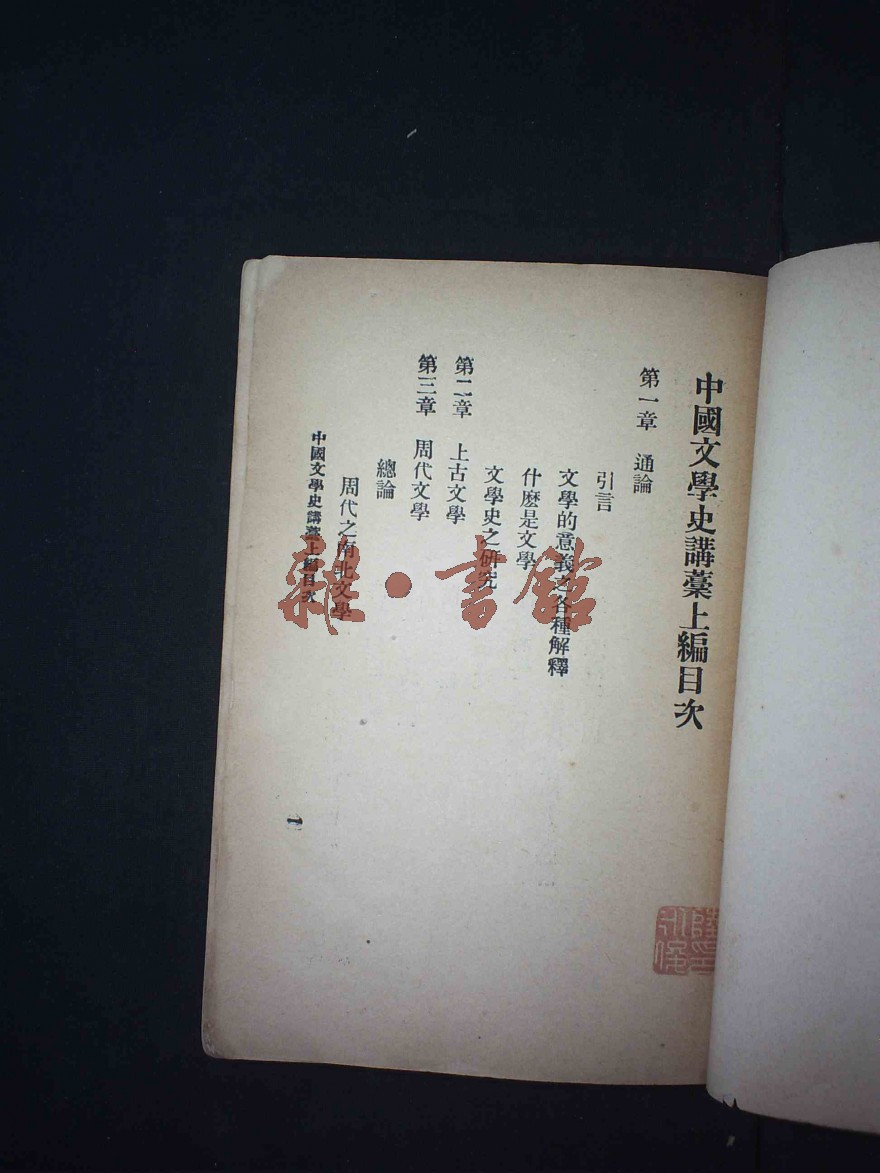 中國文學史講藁上編目次
第一章　通論
引言
文學的意義之各種解釋
什麽是文學
文學史之研究
第二章　上古文學
第三章　周代文學
總論
周代之南北文學
中國文學史講藁上編目次
一
雜·書館